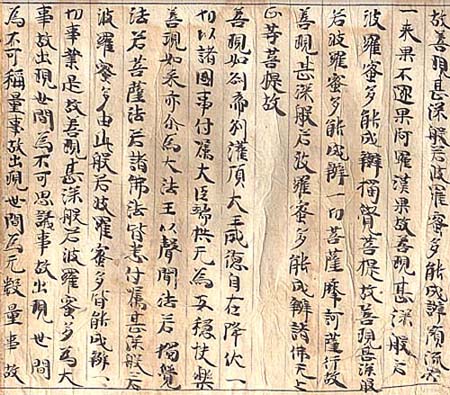 故善現甚深般若波羅蜜多能成辦預流果
一來果不還果阿羅漢果故善現甚深般若
波羅蜜多能成辦獨覺菩提故善現甚深般
若波羅蜜多能成辦一切菩薩摩訶薩行故
善現甚深般若波羅蜜多能成辦諸佛无上
正等菩提故
善現如刹帝利灌頂大王威德自在降伏一
切以諸國事付属大臣端拱无為安穏快樂
善現如来亦尒為大法王以聲聞法若獨覺
法若菩薩法若諸佛法皆悉付属甚深般若
波羅蜜多由此般若波羅蜜多皆能成辦一
切事業是故善現甚深般若波羅蜜多為大
事故出現世間為不可思議事故出現世間
為不可稱量事故出現世間為无數量事故